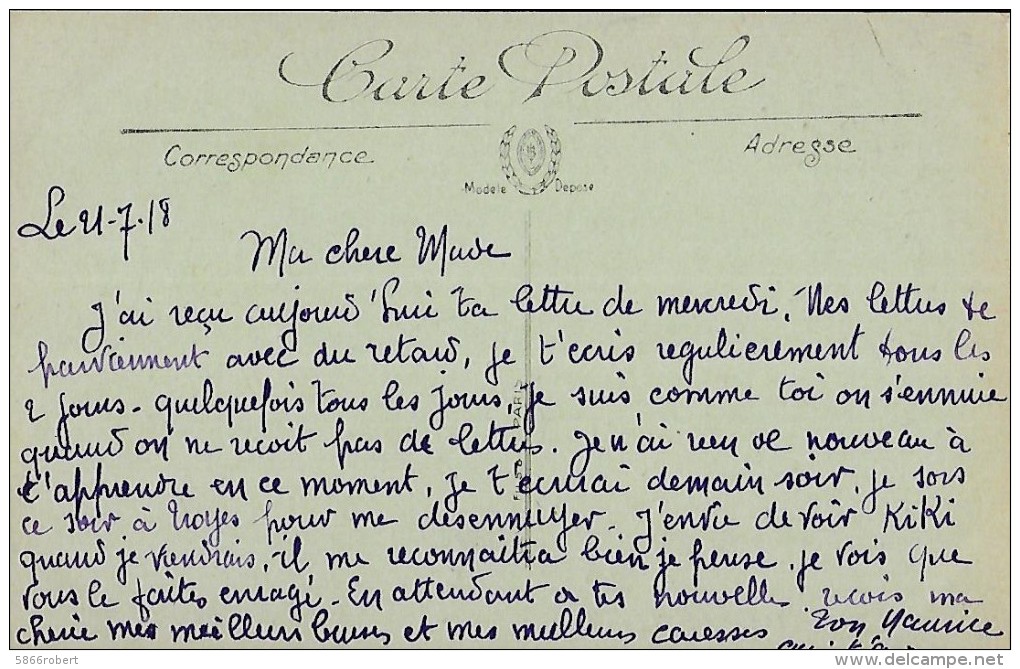 Carte Postale
Correspondance
Adresse
Modele Depose
Le 21-7-18
Ma chere Made
J'ai reçu aujourd'hui ta lettre de mercredi, Mes lettres te
parviennent avec du retard, je t'ecris regulierement tous les
2 jours - quelquefois tous les jours, Je suis comme toi on s'ennuie
quand on ne recoit pas de lettres. Je n'ai rien de nouveau à
t'apprendre en ce moment, je t'ecrirai demain soir, je sors
ce soir à Troyes pour me desennuyer. J'envie de voir KiKi
quand je viendrais, il me reconnaitra bien je pense, je vois que
vous le faites enragé - En attendant de tes nouvelles recois ma
cherie mes meilleurs baises et mes meilleures caresses Ton Maurice
PARIS
5866robert
delcampe.net